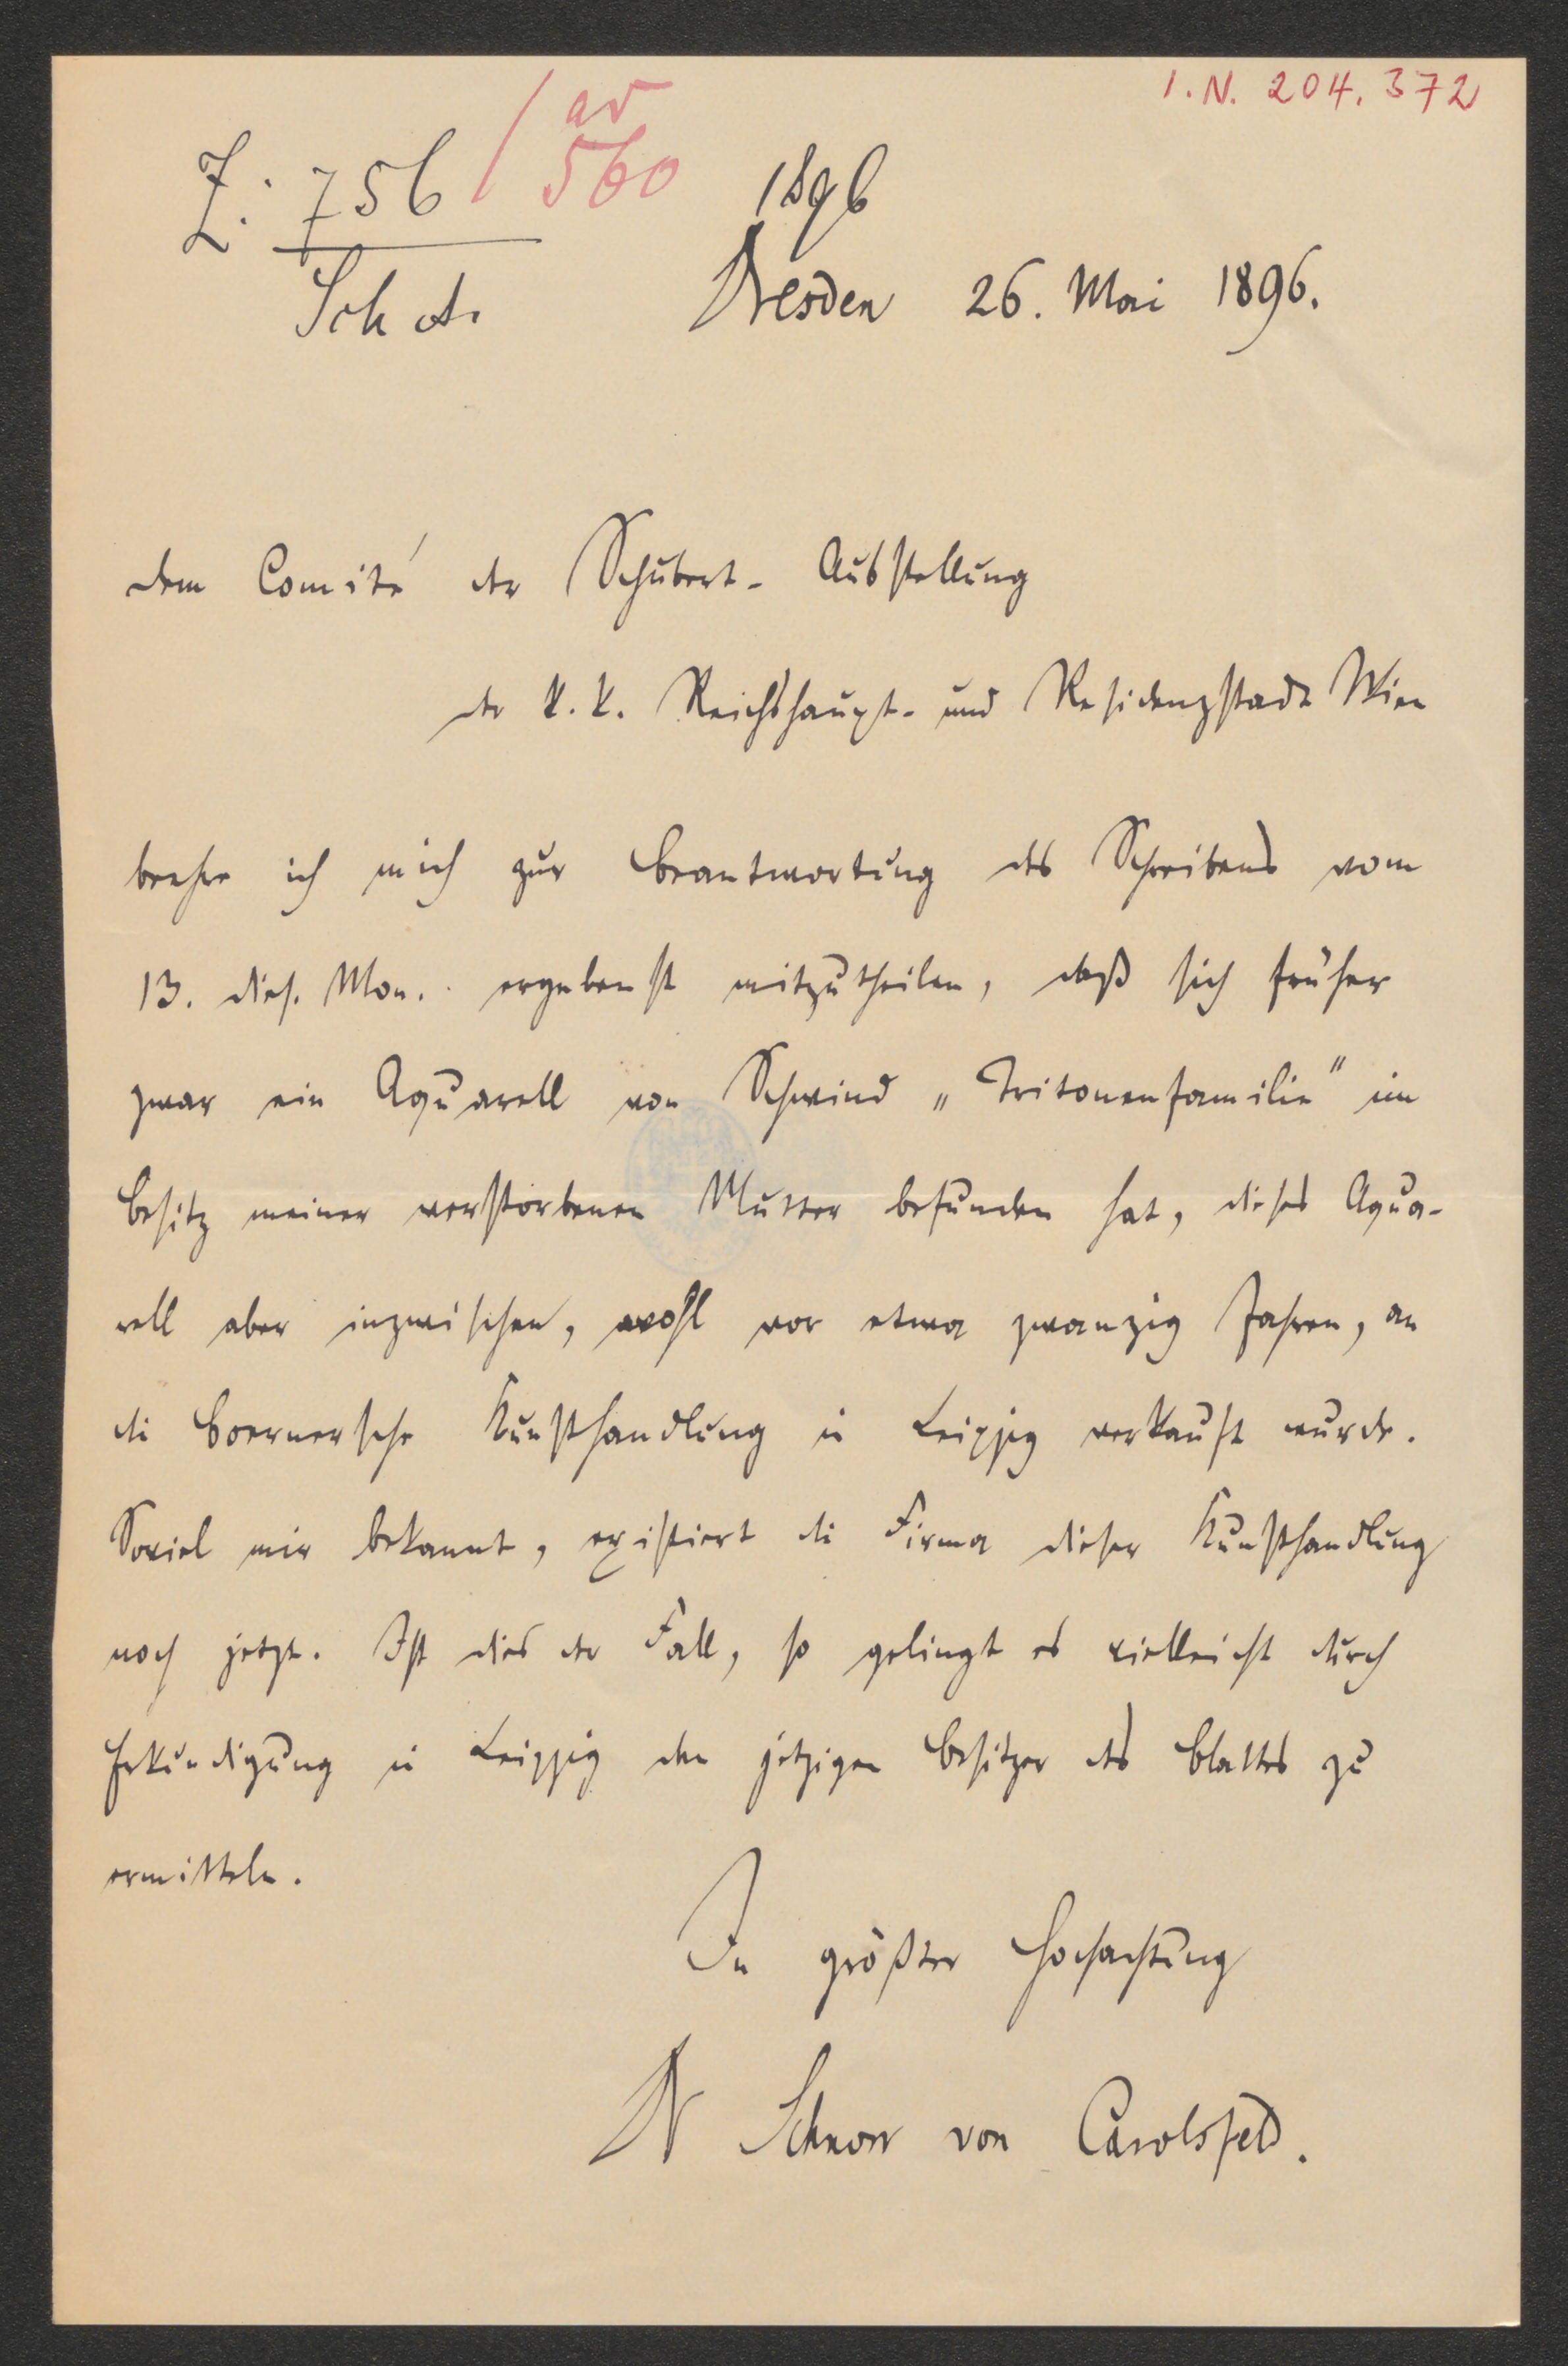 I.N. 204.372
Z: 756 / ad 560 1896
Sch A.
Dresden 26. Mai 1896.
Dem Comité der Schubert-Ausstellung
der k. k. Reichshaupt- und Residenzstadt Wien
beehre ich mich zur Beantwortung des Schreibens vom
13. dies. Mon. ergebenst mitzutheilen, daß sich früher
zwar ein Aquarell von Schwind „Tritonenfamilie" im
Besitz meiner verstorbenen Mutter befunden hat, dieses Aqua-
rell aber inzwischen, wohl vor etwa zwanzig Jahren, an
die Boernersche Kunsthandlung in Leipzig verkauft wurde.
Soviel mir bekannt, existiert die Firma dieser Kunsthandlung
noch jetzt. Ist dies der Fall, so gelingt es vielleicht durch
Erkundigung in Leipzig den jetzigen Besitzer des Blattes zu
ermitteln.
In größter Hochachtung
Schnorr von Carolsfeld.